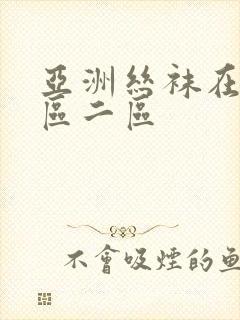 亞洲絲袜在
區二區
不會吸煙的魚